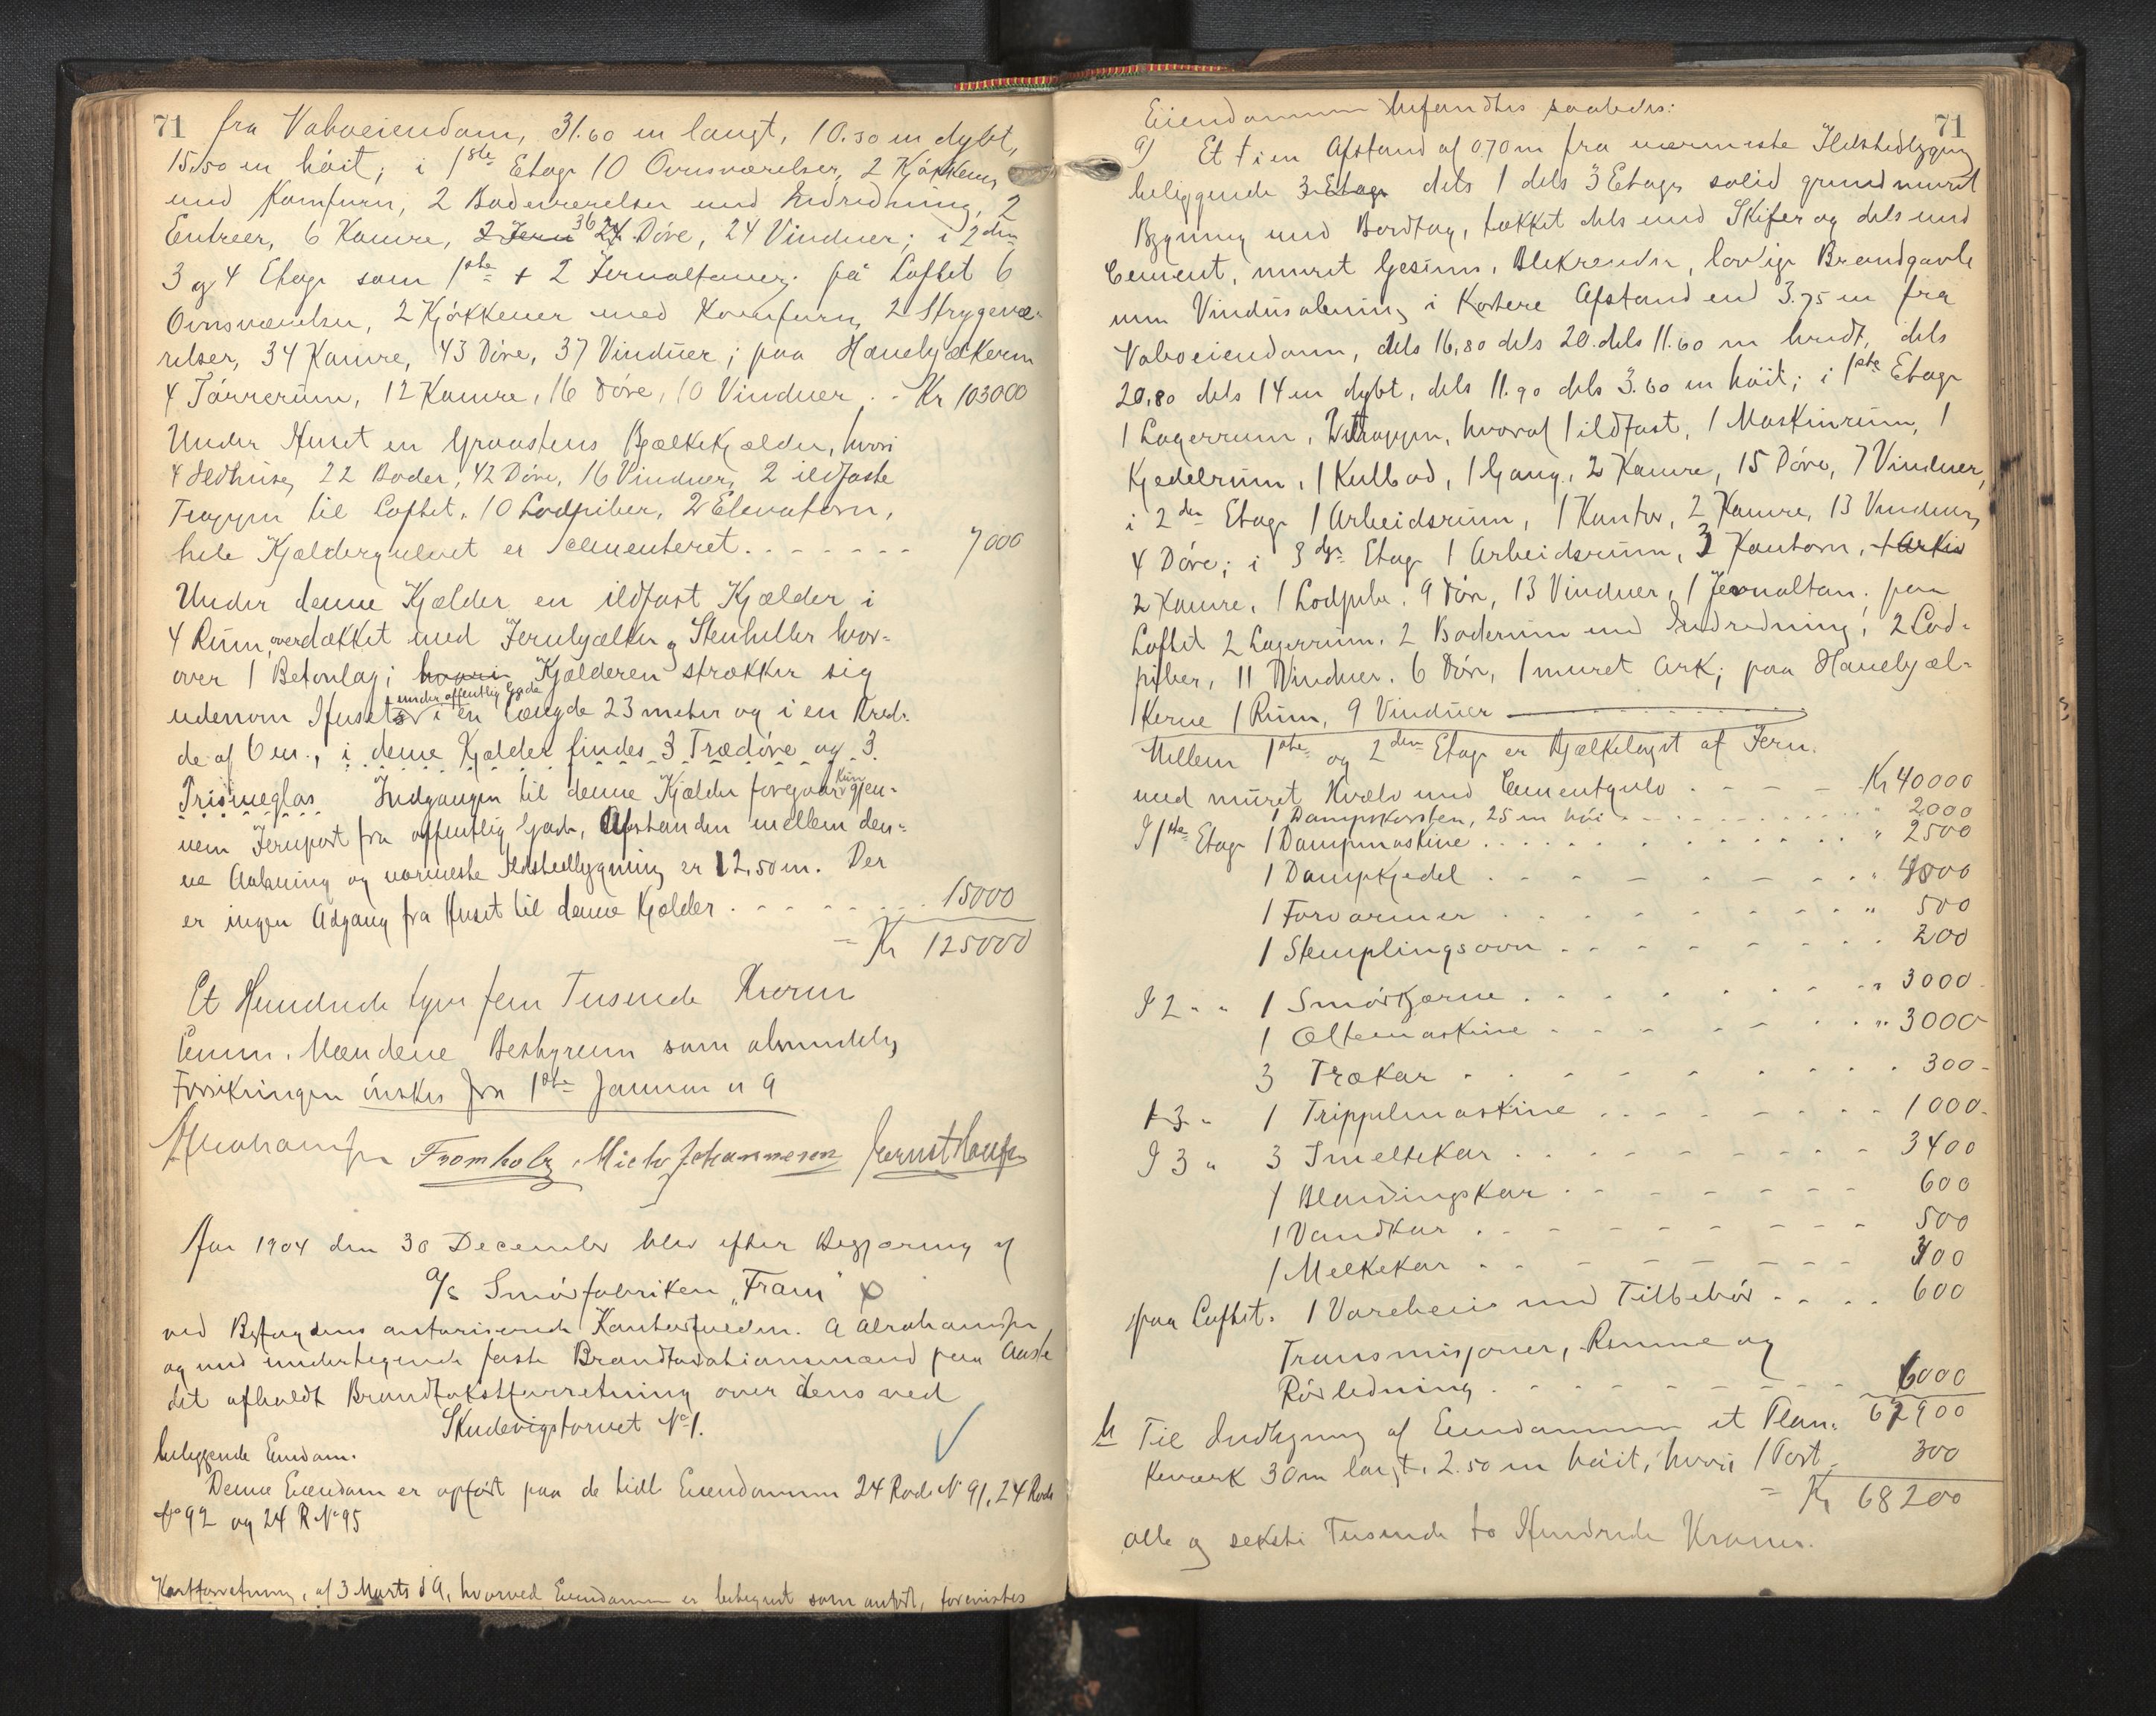 71
fra Naboeiendom, 31.60 m langt, 10.30 m dybt,
15.50 m höit; i 1ste Etage 10 Ovnsværelser, 2 Kjøkkener
med Komfurer, 2 Badeværelser med Indredning, 2
Entreer, 6 Kamre, 2 Jern 36 24 Döre, 24 Vinduer; i 2den
3 og 4 Etage som 1ste + 2 Jernaltaner; på Loftet 6
Ovnsværelser, 2 Kjøkkener med Komfurer, 2 Strygevæ-
relser, 34 Kamre, 43 Döre, 37 Vinduer; paa Hanebjælkerne
4 Törrerum, 12 Kamre, 16 Döre, 10 Vinduer . - Kr 103000
Under Huset en Graastens Bjælkekjælder, hvori
4 Ildhuse, 22 Boder, 42 Döre, 16 Vinduer, 2 ildfaste
Trapper til Loftet, 10 Lodpiber, 2 Elevatorer,
hele Kjældergulvet er cementeret. . - - - - - - 7000
Under denne Kjælder en ildfast Kjælder i
4 Rum, overdækket med Jernbjælker og Stenheller hvor-
over 1 Betonlag; hvori Kjælderen strækker sig
udenom Huset under offentlig Gade i en Længde 23 meter og i en Bred-
de af 6 m., i denne Kjælder findes 3 Trædöre og 3
Prismeglas. Indgangen til denne Kjælder foregaar kun gjen-
nem Jernport fra offentlig Gade, Afstanden mellem den-
ne Aabning og nærmeste Ildstedbygning er 12.50 m. Der
er ingen Adgang fra Huset til denne Kjælder . - - - - - - . 15000
= Kr 125000
Et Hundrede tyve fem Tusende Kroner
Bestyreren som almindelig
Forsikringen önskes fra 1ste Januar
A Abrahamsen Fromholz Michs Johannesen
Aar 1904 den 30 December blev efter Begjæring af
A/s Smörfabriken "Fram"
ved Byfogdens autoriserede Kontorfuldm. A Abrahamsen
og med undertegnede faste Brandtaxationsmænd paa Aaste
det afholdt Brandtakstforretning over dens ved
Skudevigstorvet No 1.
beliggende Eiendom.
Denne Eiendom er opfört paa de tidl Eiendomme 24 Rode No 91, 24 Rode
No 92 og 24 R No 95
Kartforretning, af 3 Marts d A, hvorved Eiendommen er betegnet som anfört, forevistes
71
Eiendommen befandtes saaledes:
a) Et i en Afstand af 0.70 m fra nærmeste Ildstedbygning
beliggende 3 Etage dels 1 dels 3 Etages solid grundmuret
Bygning med Bordtag, tækket dels med Skifer og dels med
Cement, muret Gesims, Blikrender, lovlig Brandgavle
Vindusaabning i Kortere Afstand end 3.75 m fra
Naboeiendom, dels 16,80 dels 20. dels 11.60 m bredt, dels
20,80 dels 14 m dybt, dels 11.90 dels 3.60 m höit; i 1ste Etage
1 Lagerrum, 2 Trapper, hvoraf 1 ildfast, 1 Maskinrum, 1
Kjedelrum, 1 Kulbod, 1 Gang, 2 Kamre, 15 Döre, 7 Vinduer,
i 2den Etage 1 Arbeidsrum, 1 Kontor, 2 Kamre, 13 Vinduer,
4 Döre; i 3die Etage 1 Arbeidsrum, 3 Kontorer, 1 Arkiv
2 Kamre, 1 Lodpibe, 9 Döre, 13 Vinduer, 1 Jernaltan; paa
Loftet 2 Lagerrum, 2 Baderum med Indredning, 2 Lod-
piber, 11 Vinduer, 6 Döre, 1 muret Ark; paa Hanebjæl-
kerne 1 Rum, 9 Vinduer
Mellem 1ste og 2den Etage er Bjælkelaget af Jern
med muret Hvælv med Cementgulv . - - - Kr 40000
1 Dampskorsten, 25 m höi . . . . . " 2000
I 1ste Etage 1 Dampmaskine . . . . . . " 2500
1 Dampkjedel . - - - - - . " 4000
1 Forvarmer . - - - - - " 500
1 Stemplingsovn . - - - - - 200
I 2 " " 1 Smörkjærne . . . . . . . " 3000
1 Æltemaskine . - - - - . " 3000
3 Trækar . - - - - - . 300-
1 3 " 1 Trippelmaskine . . - - - - 1000-
I 3 " 3 Smeltekar . . - - - - - 3400
1 Blandingskar . - - - - - 600
1 Vandkar . - - - - - - 500
1 Melkekar - - - - - - - 400
paa Loftet. 1 Vareheis med Tilbehör . - - . . 600
Transmisjoner, Remme og
Rörledning . - - - - - - - 6000
b Til Indhegning af Eiendommen et Plan- 67900
keværk 30 m langt, 2.50 m höit, hvori 1 Port - 300
= Kr 68200
otte og seksti Tusende to Hundrede Kroner.